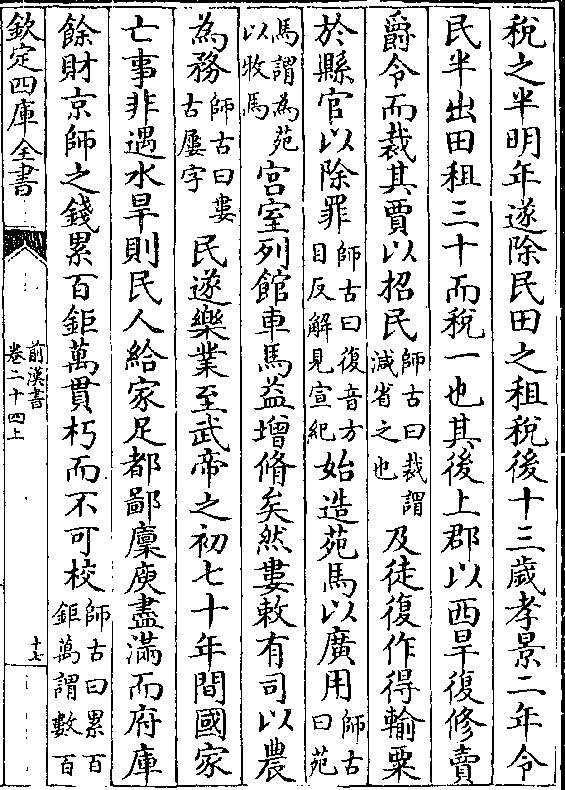 稅之半明年遂除民田之租稅後十三歲孝景二年令
民半出田租三十而稅一也其後上郡以西旱復修賣
爵令而裁其賈以招民師古曰裁謂減省之也及徒復作得輸粟
於縣官以除罪師古曰復音方目反解見宣紀始造苑馬以廣用師古曰苑
馬謂為苑以牧馬宮室列館車馬益增脩矣然婁敕有司以農
為務師古曰婁古屢字民遂樂業至武帝之初七十年間國家
亡事非遇水旱則民人給家足都鄙廩庾盡滿而府庫
餘財京師之錢累百鉅萬貫朽而不可校師古曰累百鉅萬謂數百
欽定四庫全書
前漢書
卷二十四上
十七